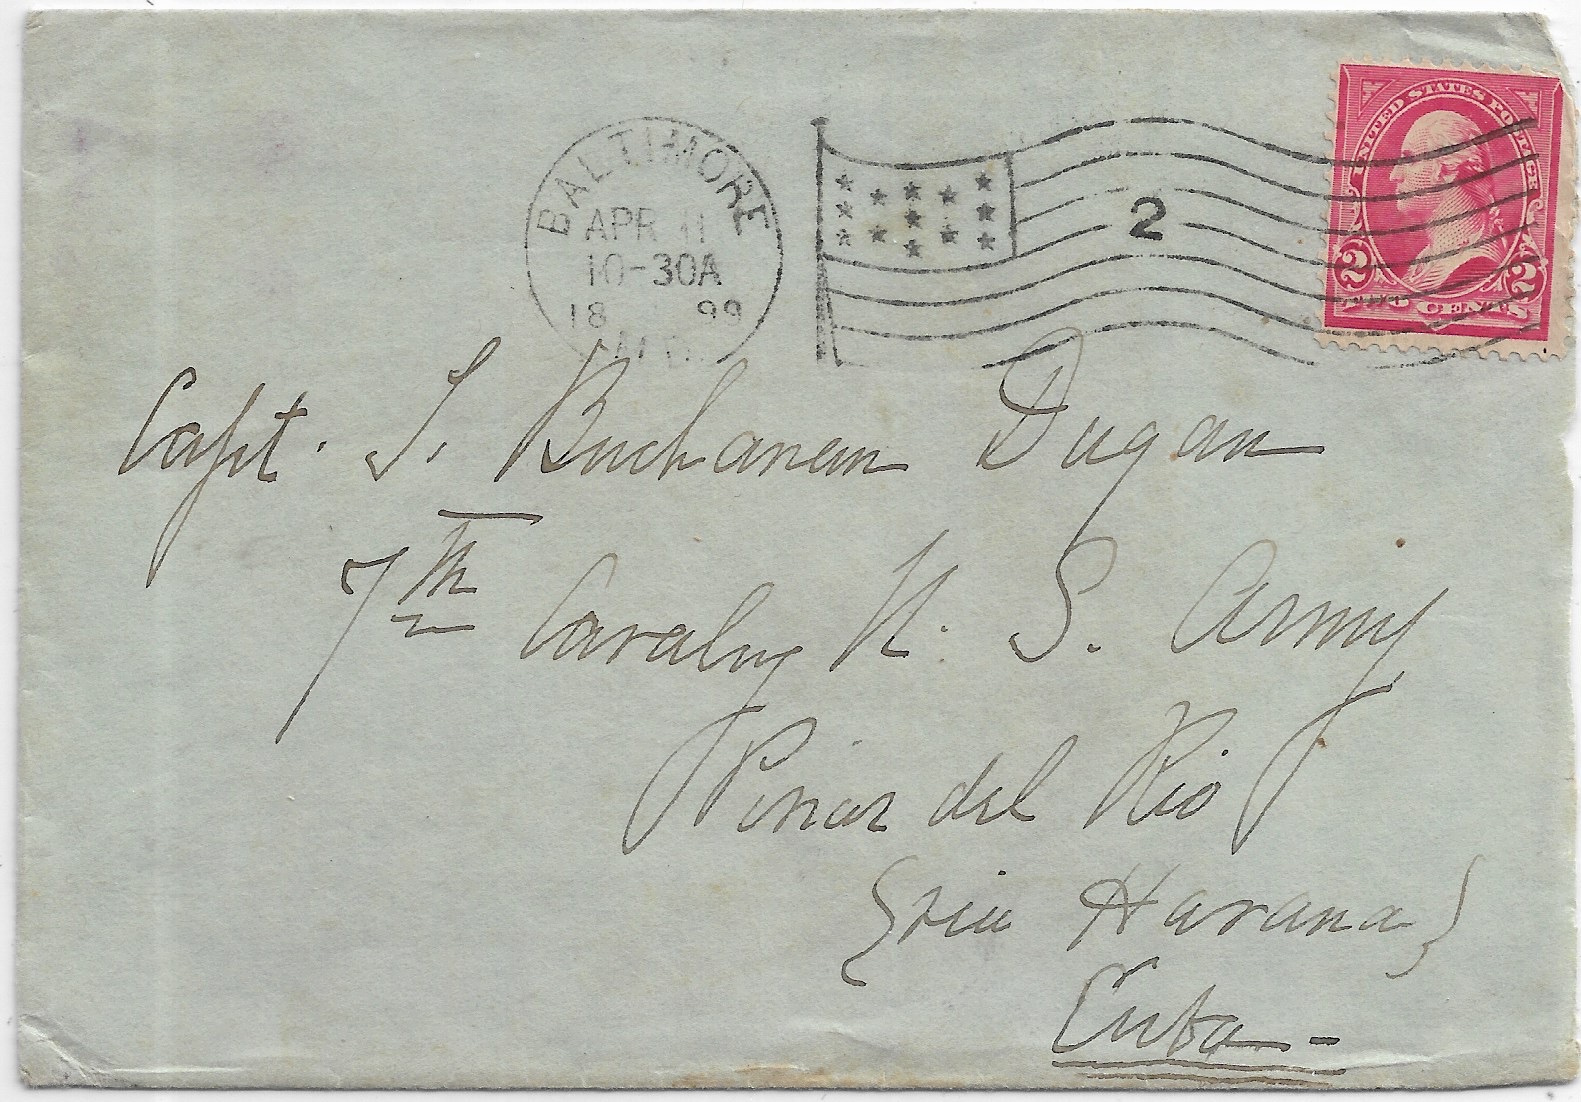 BALTIMORE
APR 11
10-30A
18 99
MD.
2
UNITED STATES POSTAGE
2 2
TWO CENTS
Capt. T. Buchanan Dugan
7th Cavalry U. S. Army
Pinar del Rio
(via Havana)
Cuba-